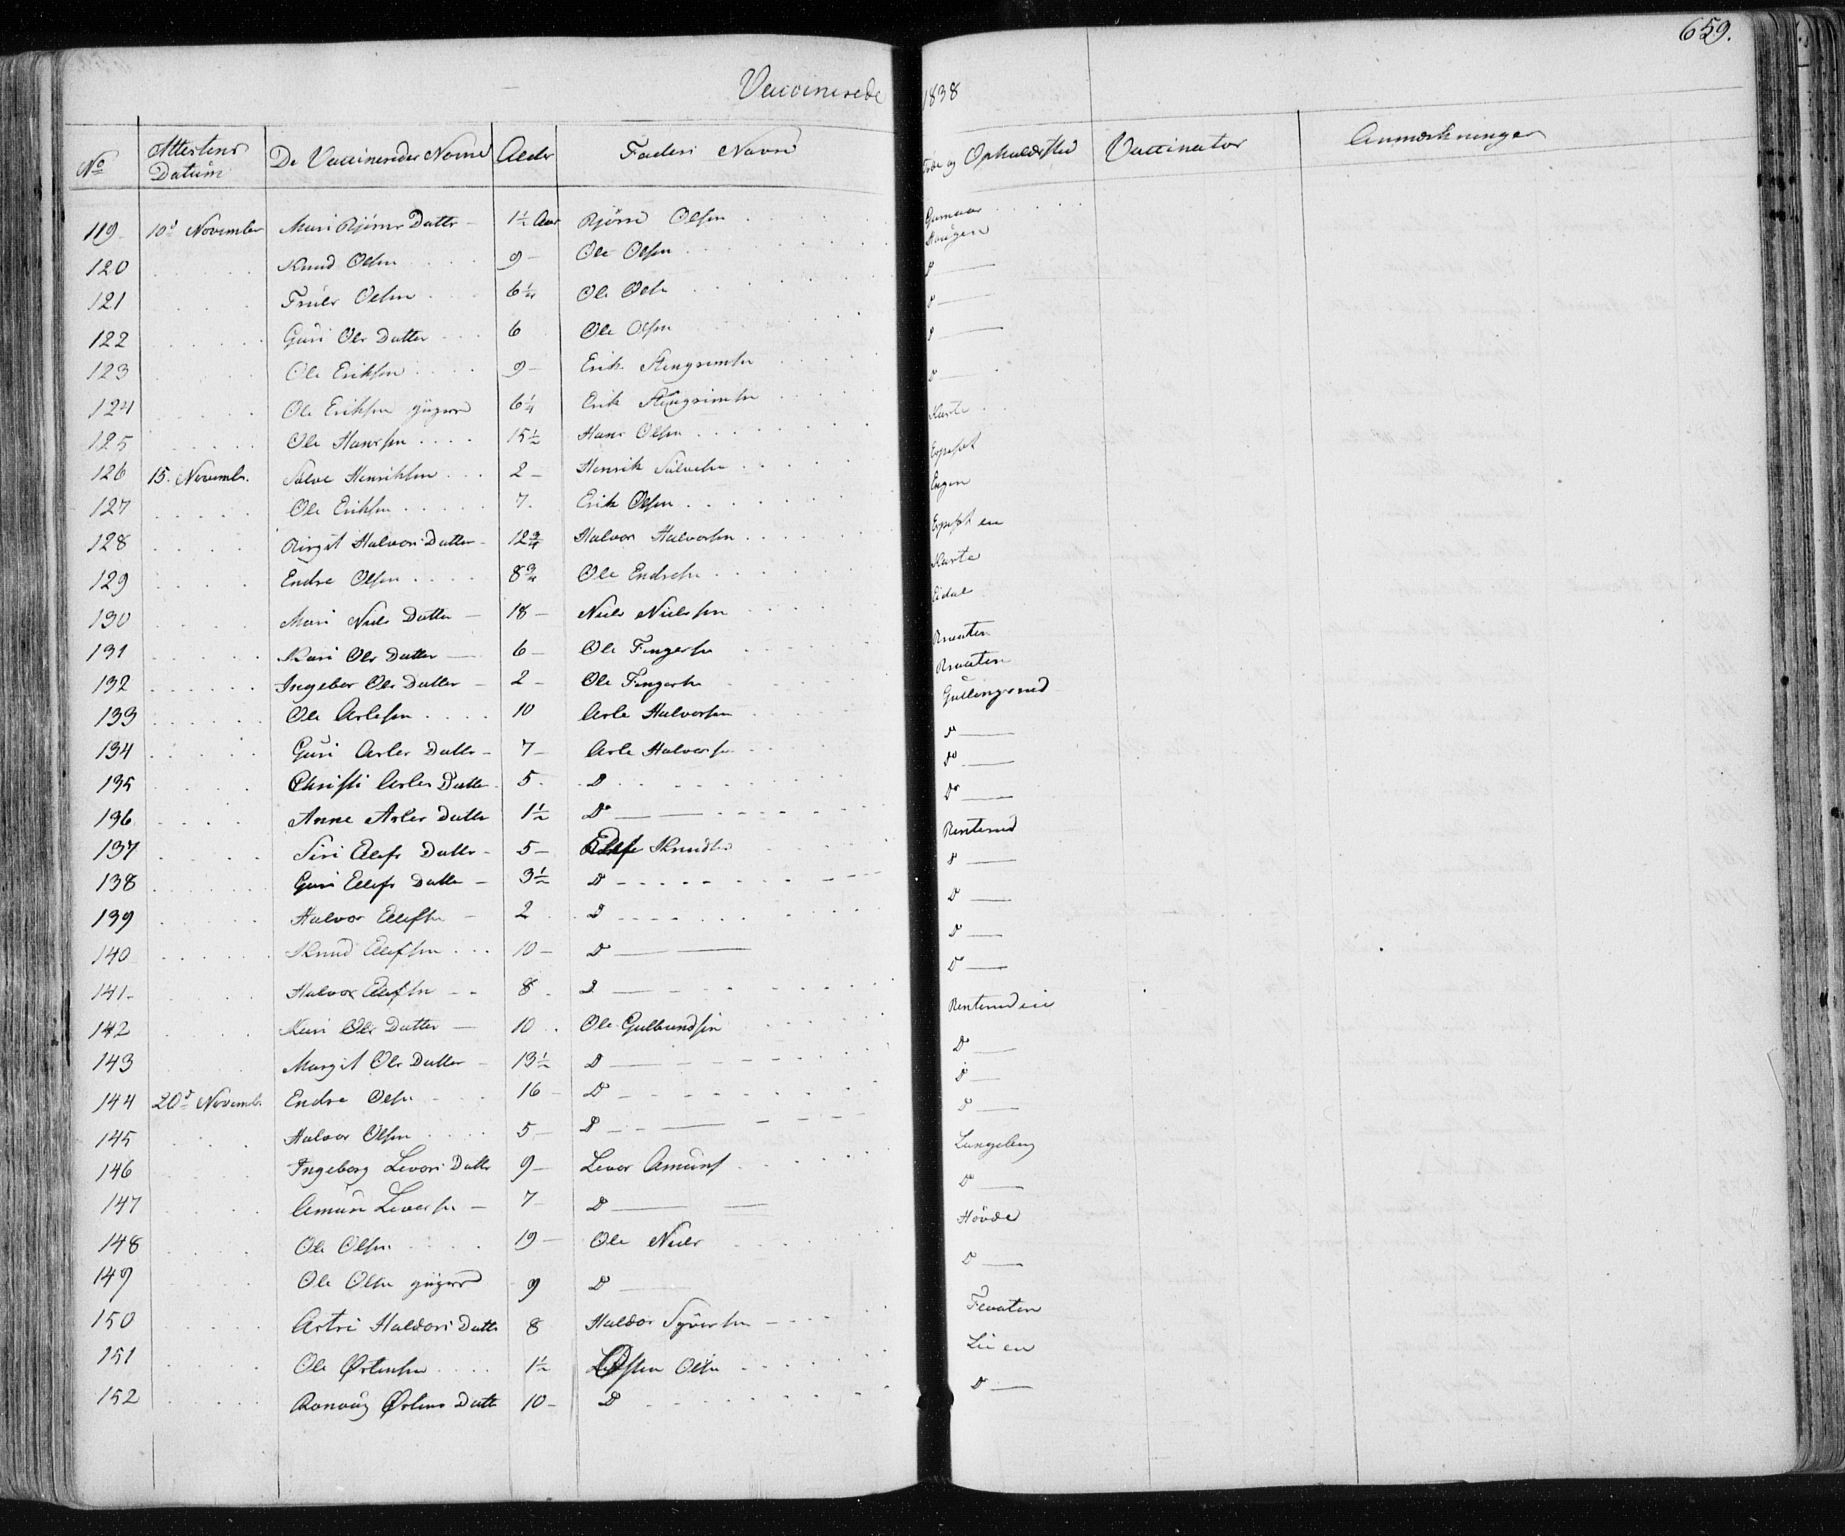 659.
Vaccinerede 1838
No Attestens Datum De Vaccineredes Navne Alder Faders Navne Føde og Opholdssted Vaccinator Anmærkninger
119 10d November Mari Bjørns Datter 1½ Aar Bjørn Olsen
120 Knud Olsen 9 Ole Olsen Haugen
121 Truls Olsen 6¼ Ole Olsen D
122 Guri Ols Datter 6 Ole Olsen D
123 Ole Eriksen 9 Erik Stengrimsen D
124 Ole Eriksen yngere 6¼ Erik Stengrimsen D
125 Ole Hansen 15½ Hans Olsen
126 15. Novembr. Salve Henriksen 2 Henrik Salvesen
127 Ole Eriksen 7. Erik Olsen Engen
128 Birgit Halvors Datter 12¾ Halvor Halvorsen
129 Endre Olsen 8¾ Ole Endresen
130 Mari Niels Datter 18 Niels Nielsen Eidal
131 Kari Ols Datter 6 Ole Fingersen Braaten
132 Ingebor Ols Datter 2 Ole Fingersen Braaten
133 Ole Aslesen 10 Asle Halvorsen Gullingsrud
134 Guri Asles Datter 7 Asle Halvorsen D
135 Christi Asles Datter 5. D Do
136 Anne Asles Datter 1½ Do Do
137 Siri Ellefs Datter 5 Ellef Knudsen Renterud
138 Guri Ellefs Datter 3½ D D
139 Halvor Ellefsen 2 D D
140 Knud Ellefsen 10 D D
141 Halvor Ellefsen 8 D D
142 Kari Ols Datter 10 Ole Gulbrandsen Renterudeie
143 Margit Ols Datter 13½ D D
144 20d Novemb. Endre Olsen 16 D D
145 Halvor Olsen 5 D D
146 Ingeborg Levors Datter 9 Levor Amunds Langeberg
147 Amund Levorsen 7 D D
148 Ole Olsen 19 Ole Niels Hovde
149 Ole Olsen yngere 9 D D
150 Astri Haldors Datter 8 Haldor Syversen
151 Ole Østensen 1½ Østen Olsen Lien
152 Ronnaug Østens Datter 10 D D